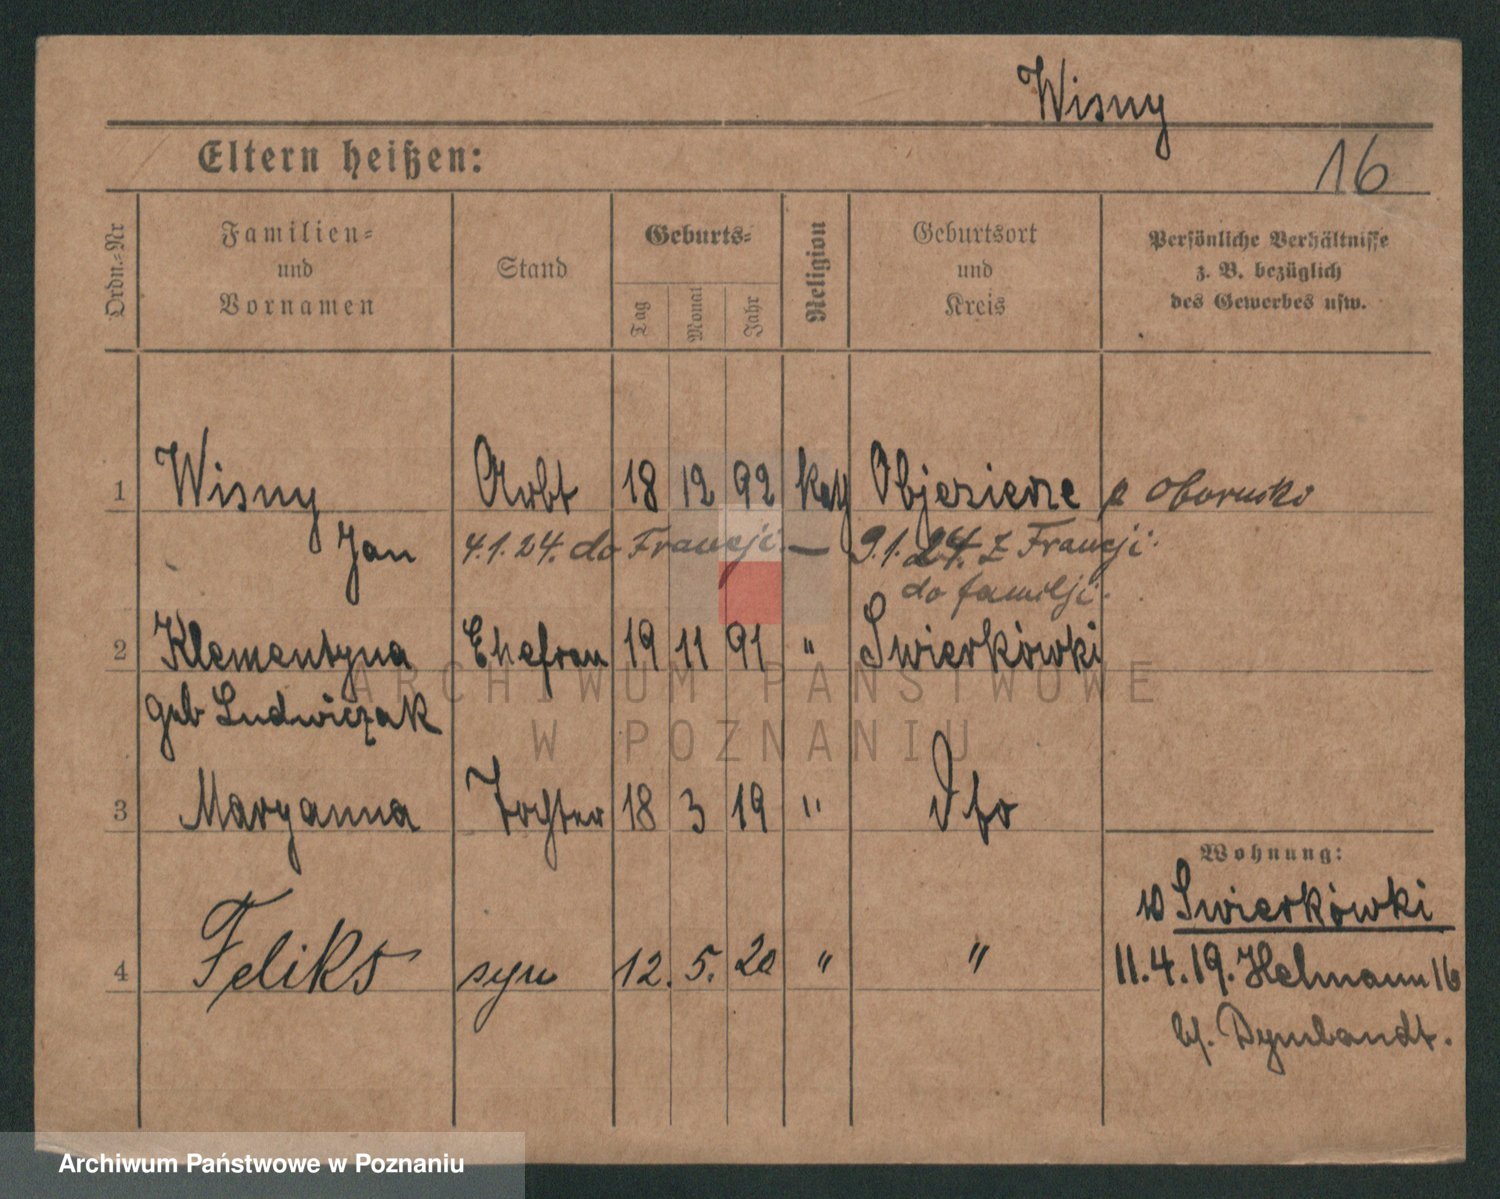 Wisny
Eltern heißen:
16
Ordn.=Nr
Familien=
und
Vornamen
Stand
Geburts=
Tag
Monat
Jahr
Religion
Geburtsort
und
Kreis
Persönliche Verhältnisse
z. B. bezüglich
des Gewerbes usw.
1 Wisny Arbt 18 12 92 kath Objezierze p Obornski
Jan 4.1.24. do Francji — 9.1.24. z Francji
do familji.
2 Klementyna Ehefrau 19 11 91 " Swierkówki
geb Ludwiczak
3 Maryanna Tochter 18 3 19 " Dto
Wohnung:
w Swierkówki
4 Feliks syn 12. 5. 20 " "
11.4.19. Helmann 16
b/. Dymbandt.
ARCHIWUM PAŃSTWOWE
W POZNANIU
Archiwum Państwowe w Poznaniu